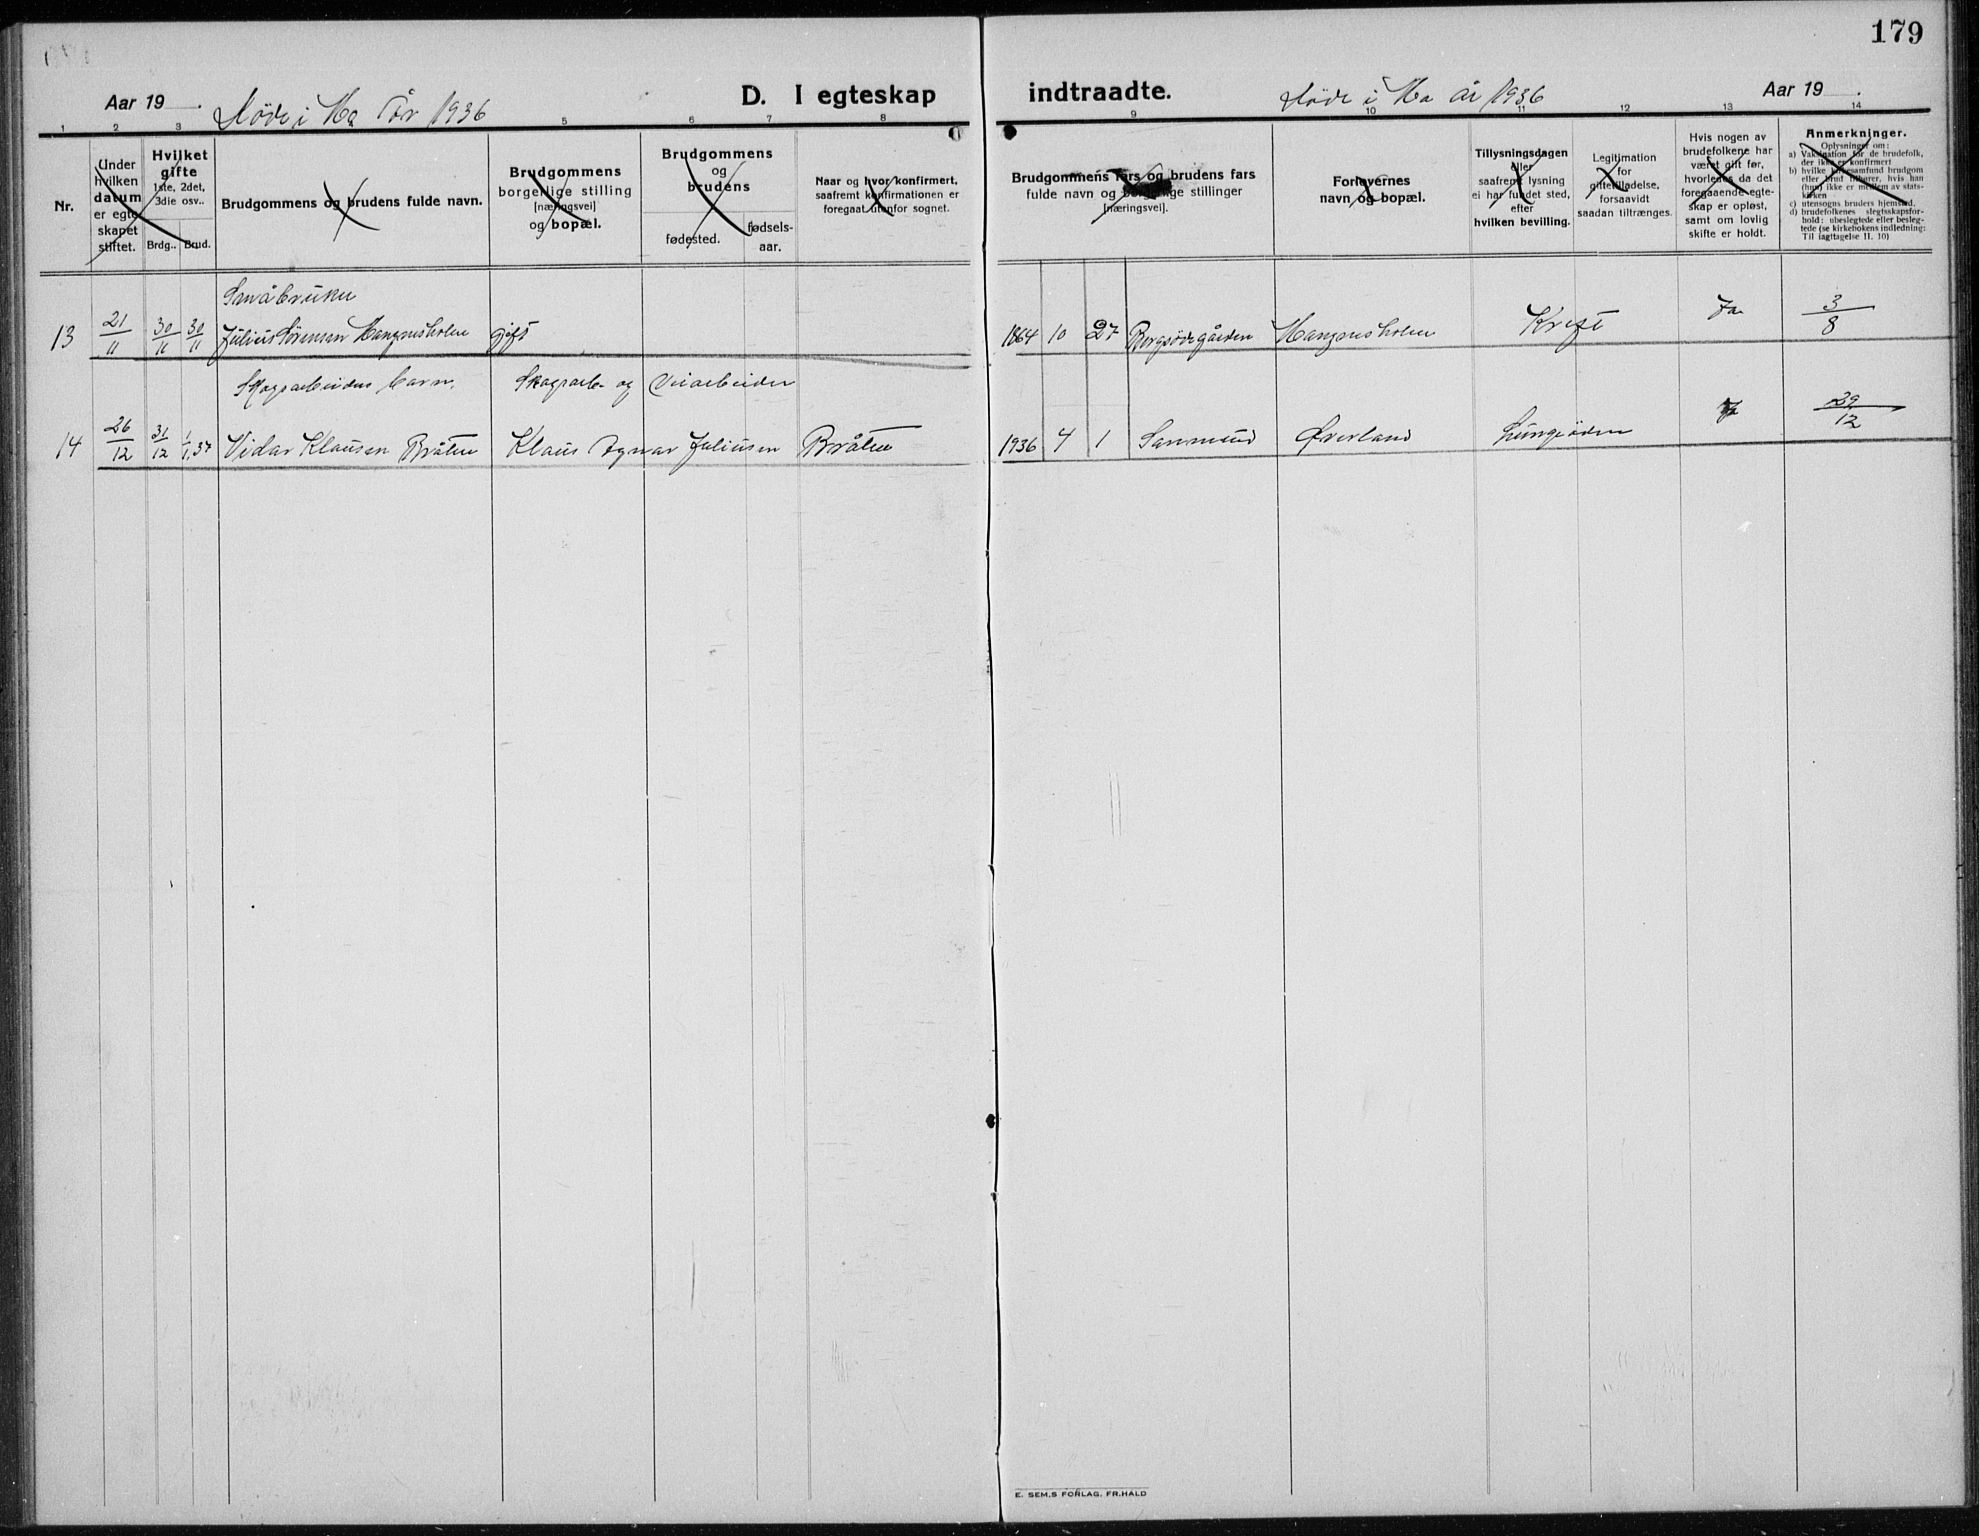 179
Aar 19 . Døde i Mo år 1936 D. I egteskap indtraadte. Døde i Mo år 1936 Aar 19 .
1 2 3 5 6 7 8 9 10 11 12 13 14
Nr.
Under
hvilken
datum
er egte-
skapet
stiftet.
Hvilket
gifte
1ste, 2det,
3die osv..
Brdg.. Brud.
Brudgommens og brudens fulde navn.
Brudgommens
borgerlige stilling
[næringsvei]
og bopæl.
Brudgommens
og
brudens
fødested.
fødsels-
aar.
Naar og hvor konfirmert,
saafremt konfirmationen er
foregaat utenfor sognet.
Brudgommens fars og brudens fars
fulde navn og borgerlige stillinger
[næringsvei].
Forlovernes
navn og bopæl.
Tillysningsdagen
eller
saafremt lysning
ei har fundet sted,
efter
hvilken bevilling.
Legitimation
for
giftetilladelse,
forsaavidt
saadan tiltrænges.
Hvis nogen av
brudefolkene har
været gift før,
hvorledes da det
foregaaende egte-
skap er opløst,
samt om lovlig
skifte er holdt.
Anmerkninger.
Oplysninger om:
a) Vaksination for de brudefolk,
der ikke er konfirmert
b) hvilke troessamfund brudgom
eller brud tilhører, hvis han
(hun) ikke er medlem av stats-
kirken
c) utensogns bruders hjemsted.
d) brudefolkenes slegtsskapsfor-
hold: ubeslegtede eller besleg-
tede (se kirkebokens indledning:
Til iagttagelse II. 10)
Småbruker
13 21/11 30/11 30/11 Julius Sørensen Mangnesholen gift 1864 10 27 Bergsødegården Mangnesholen Kreft Ja 3/8
Skogsarbeiders barn. Skogsarb. og Veiarbeider
14 26/12 31/12 1/1.37 Vidar Klausen Bråten Klaus Agnar Juliusen Bråten 1936 4 1 Sanmund Øverland Lungeøden Ja 29/12
E. SEM.S FORLAG, FR.HALD